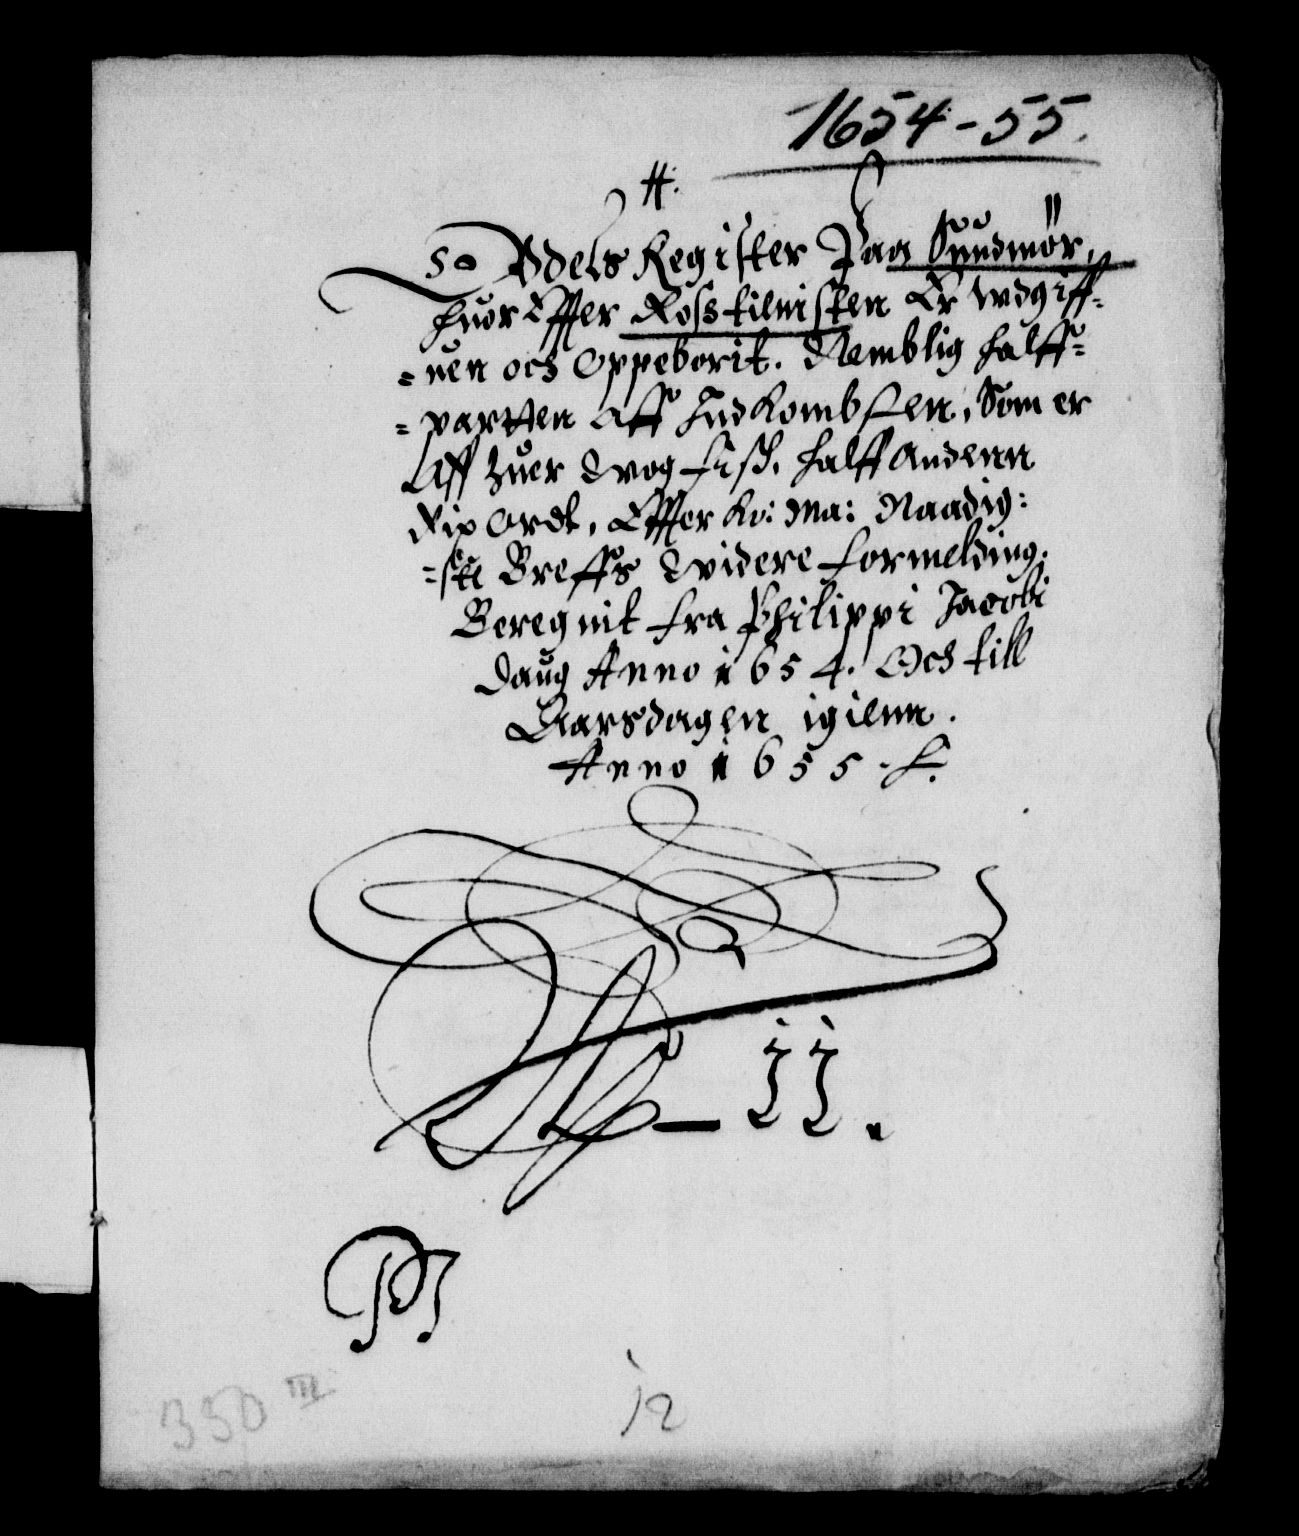 1654-55.
H.
Adels Register Paa Sundmör,
huor Effter Rosstienisten Er wdgiff-
-uen och Oppeborit. Nemblig halff-
-partten Aff Indkombsten, Som er
Aff huer Twog fisk, halff Andenn
Rix Ordt, Effter Ko: Ma: Naadig:
-ste Breffs Widere formelding.
Beregnit fra Philippi Jacobi
daug Anno 1654. Och till
Aarsdagen igienn.
Anno 1655.
– 11.
12
350 III